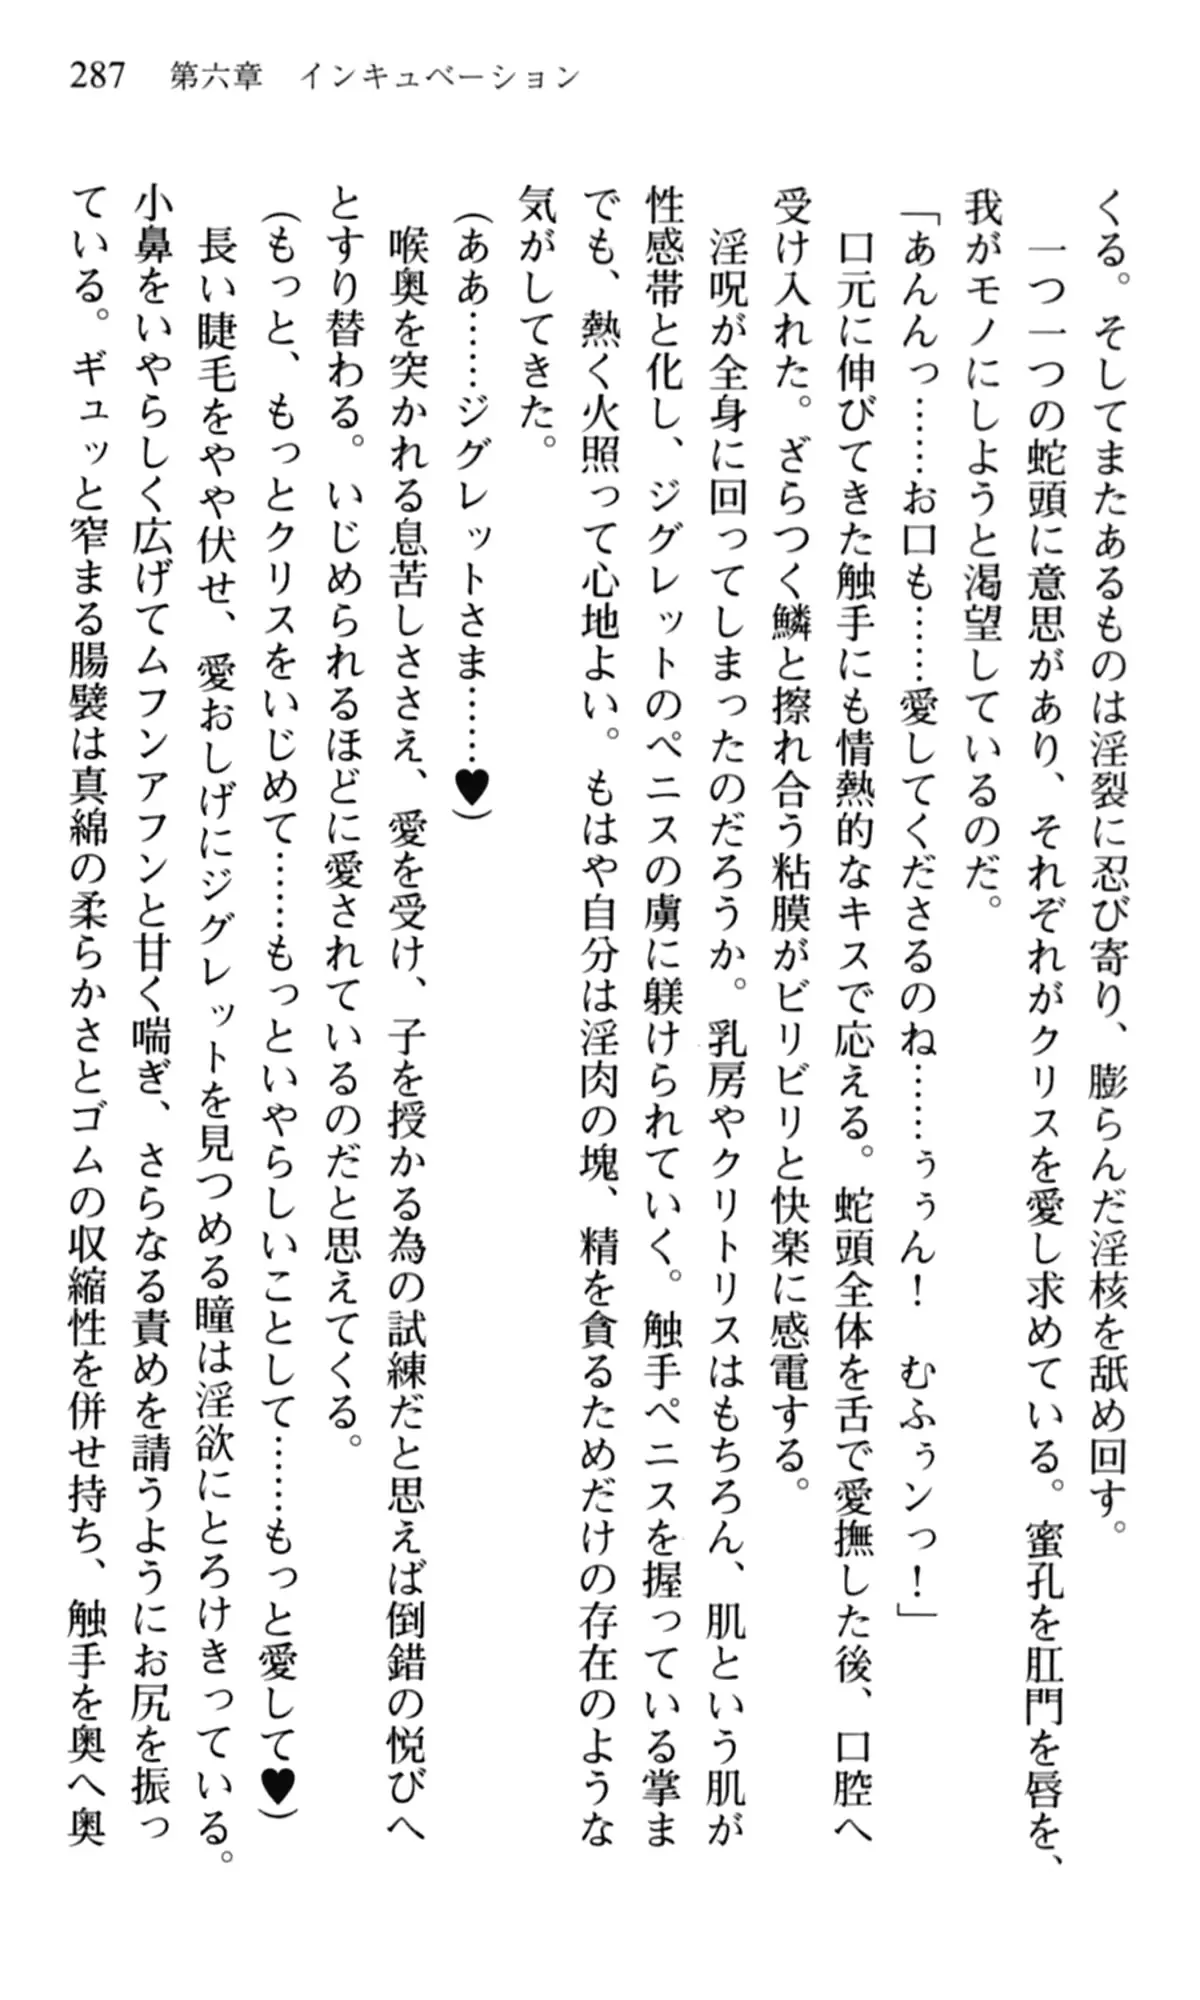 287　第六章　インキュベーション
くる。そしてまたあるものは淫裂に忍び寄り、膨らんだ淫核を舐め回す。
一つ一つの蛇頭に意思があり、それぞれがクリスを愛し求めている。蜜孔を肛門を唇を、
我がモノにしようと渇望しているのだ。
「あんんっ……お口も……愛してくださるのね……ぅぅん！　むふぅンっ！」
口元に伸びてきた触手にも情熱的なキスで応える。蛇頭全体を舌で愛撫した後、口腔へ
受け入れた。ざらつく鱗と擦れ合う粘膜がビリビリと快楽に感電する。
淫呪が全身に回ってしまったのだろうか。乳房やクリトリスはもちろん、肌という肌が
性感帯と化し、ジグレットのペニスの虜に躾けられていく。触手ペニスを握っている掌ま
でも、熱く火照って心地よい。もはや自分は淫肉の塊、精を貪るためだけの存在のような
気がしてきた。
（ああ……ジグレットさま……♥）
喉奥を突かれる息苦しささえ、愛を受け、子を授かる為の試練だと思えば倒錯の悦びへ
とすり替わる。いじめられるほどに愛されているのだと思えてくる。
（もっと、もっとクリスをいじめて……もっといやらしいことして……もっと愛して♥）
長い睫毛をやや伏せ、愛おしげにジグレットを見つめる瞳は淫欲にとろけきっている。
小鼻をいやらしく広げてムフンアフンと甘く喘ぎ、さらなる責めを請うようにお尻を振っ
ている。ギュッと窄まる腸襞は真綿の柔らかさとゴムの収縮性を併せ持ち、触手を奥へ奥